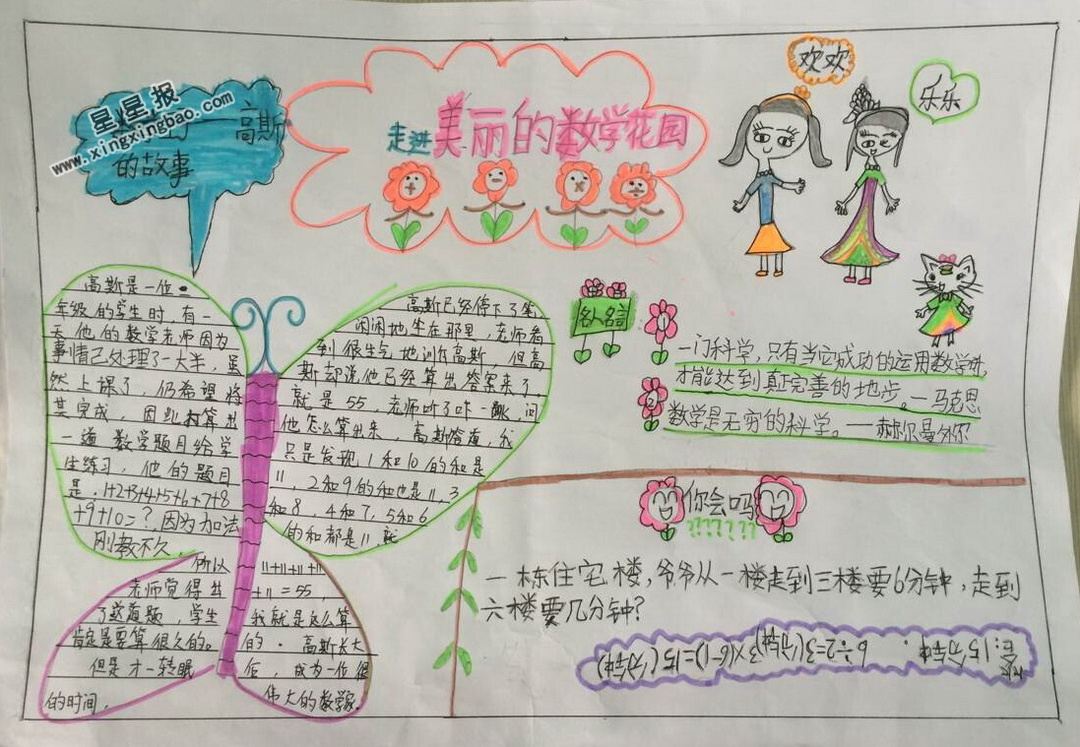 星星报
www.xingxingbao.com
高斯
的故事
走进美丽的数学花园
欢欢
乐乐
高斯是一位二
年级的学生时,有一
天他的数学老师因为
事情已处理了大半,虽
然上课了,仍希望将
其完成,因此打算出
一道数学题目给学
生练习,他的题目
是:1+2+3+4+5+6+7+8
+9+10=?,因为加法
刚教不久,
所以
老师觉得出
了这道题,学生
肯定是要算很久的。
但是才一转眼
的时间,
高斯已经停下了笔
闲闲地坐在那里,老师看
到很生气地训斥高斯,但高
斯却说他已经算出答案来了
就是55,老师听了吓一跳,问
他怎么算出来,高斯答道,我
只是发现1和10的和是
11,2和9的和也是11,3
和8 4和7,5和6
的和都是11 就
11+11+11+11
+11=55,
我就是这么算
的.高斯长大
后,成为一位很
伟大的数学家.
名人名言
1
一门科学,只有当它成功的运用数学时,
才能达到真正完善的地步。—马克思
2
数学是无穷的科学。——赫尔曼外尔
你会吗
??????
一栋住宅楼,爷爷从一楼走到三楼要6分钟,走到
六楼要几分钟?
答:15分钟. 6÷2=3(分钟)3×(6-1)=15(分钟)